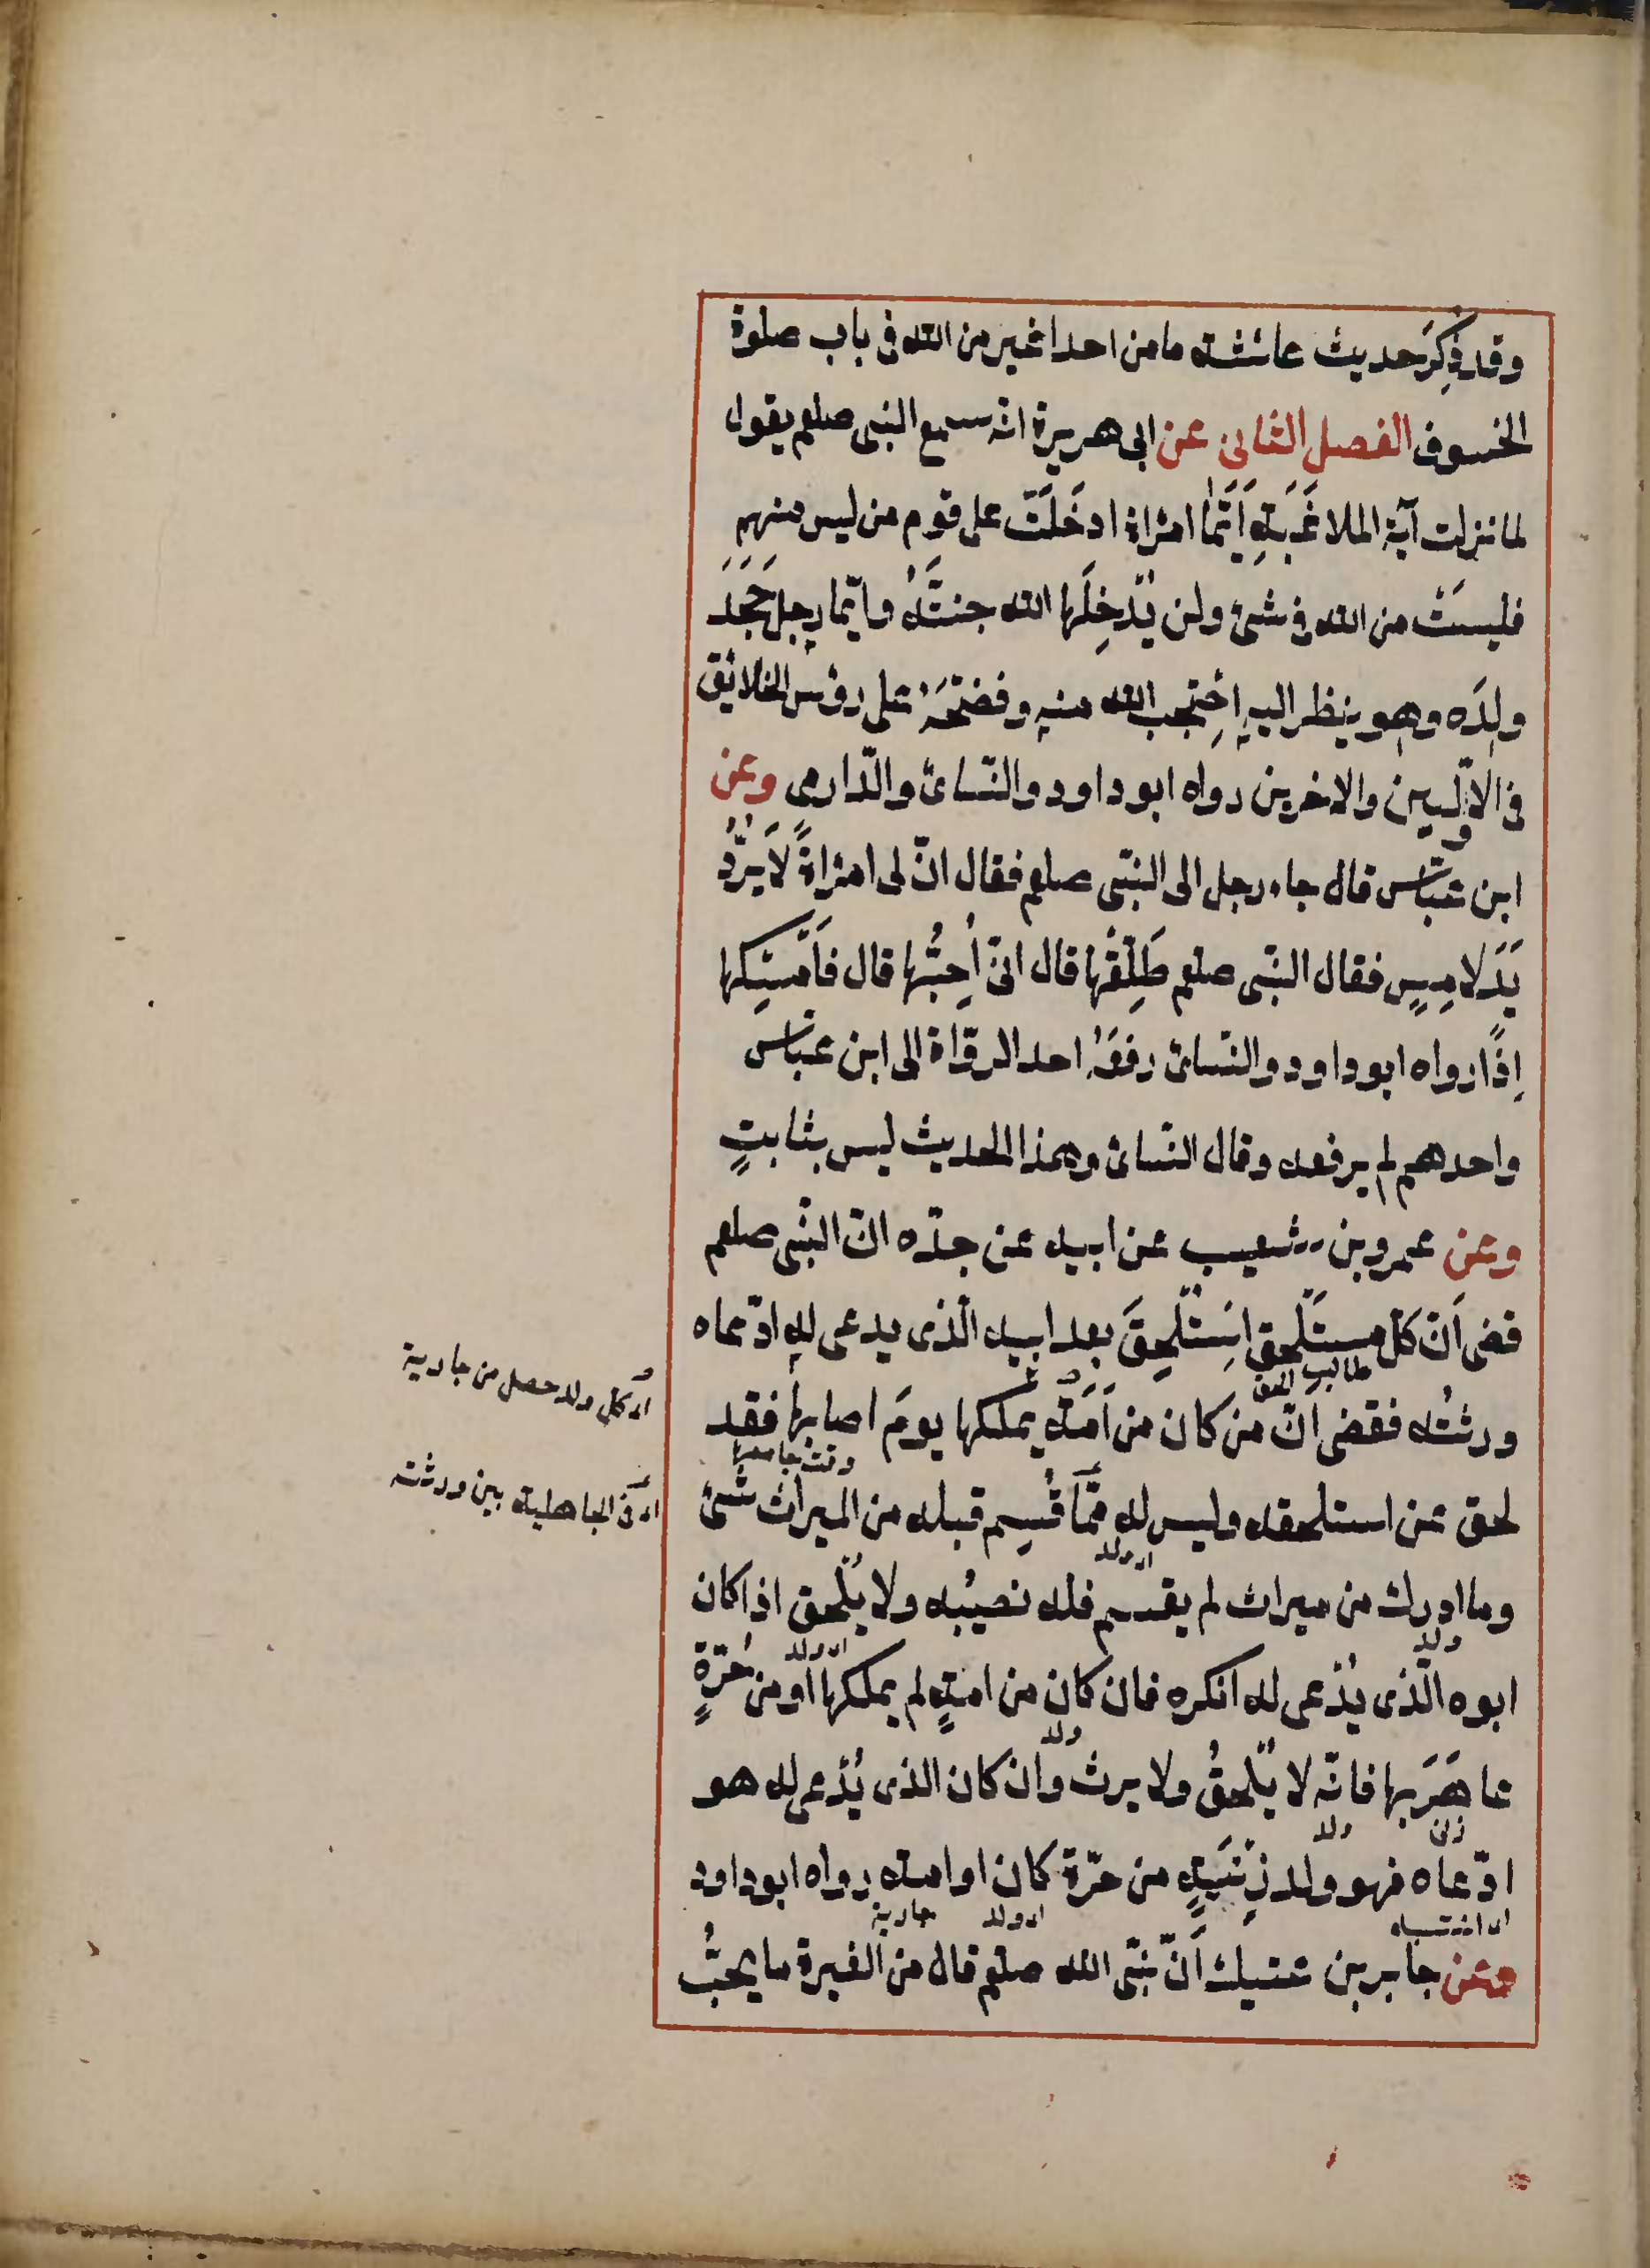 وقد ذُكِرَ حديث عائشة ما من احد اغير من الله فى باب صلوة
الخسوف الفصل الثانى عن ابى هريرة انه سمع النبى صلعم يقول
لما نزلت آية الملاعَنَةِ اَيُّمَا امْرَاة ادخَلَتْ على قوم من ليس منهم
فليسَتْ من الله فى شئ ولن يُدْخِلَها الله جنتَهُ وايّما رجل جَحَدَ
ولدَه وهو ينظر اليهِ اِحْتجب الله منهِ وفضحَهُ على رؤس الخلائق
فى الاوّلين والاخرين رواه ابو داود والنّسائ والدّارمى وعن
ابن عبّاس قال جاء رجل الى النبّى صلعم فقال انّ لى امْرَاةً لَا يَرُدُّ
يَدَ لامِسٍ فقال النّبى صلعم طَلِّقْها قال انّى اُحِبُّها قال فاَمْسِكها
اِذًا رواه ابو داود والنّسائ رفعَهُ احد الرّواة الى ابن عبّاس
واحدهم لم يرفعه وقال النّسائ وهذا الحديث ليس بثابتٍ
وعن عمرو بن شعيب عن ابيه عن جدّه انّ النّبى صلعم
قضى اَنّ كلّ مستَلْحقٍ اسْتُلْحِقَ بعد ابيه الّذى يدعى له ادّعاه
طالب الحق
ورثتُه فقضى انّ من كان من اَمَةٍ يملكها يومَ اصابها فقد
وقت جامعها
لحق عن استلحقه وليس له مِمَّا قُسِم قبله من الميراث شئ
اى ولد
وما ادرك من ميراث لم يقسم فله نصيبُه ولا يُلْحق اذا كان
ولد
اى ولد
ابوه الّذى يُدْعى له انكره فان كان من امةٍ لم يملكها او من حُرّةٍ
ولد
عاهَرَ بها فانّه لا يُلْحقُ ولا يرث وان كان الذى يُدْعى له هو
زنى
ولد
ادّعاه فهو ولد زِنْيَةٍ من حرّة كان او امة رواه ابو داود
اى انتسابه
اى ولد
جارية
وعن جابر بن عتيك اَنّ نبّى الله صلعم قال من الغيرة ما يحبُّ
اى كل ولد حصل من جارية
اى فى الجاهلية بين ورثته